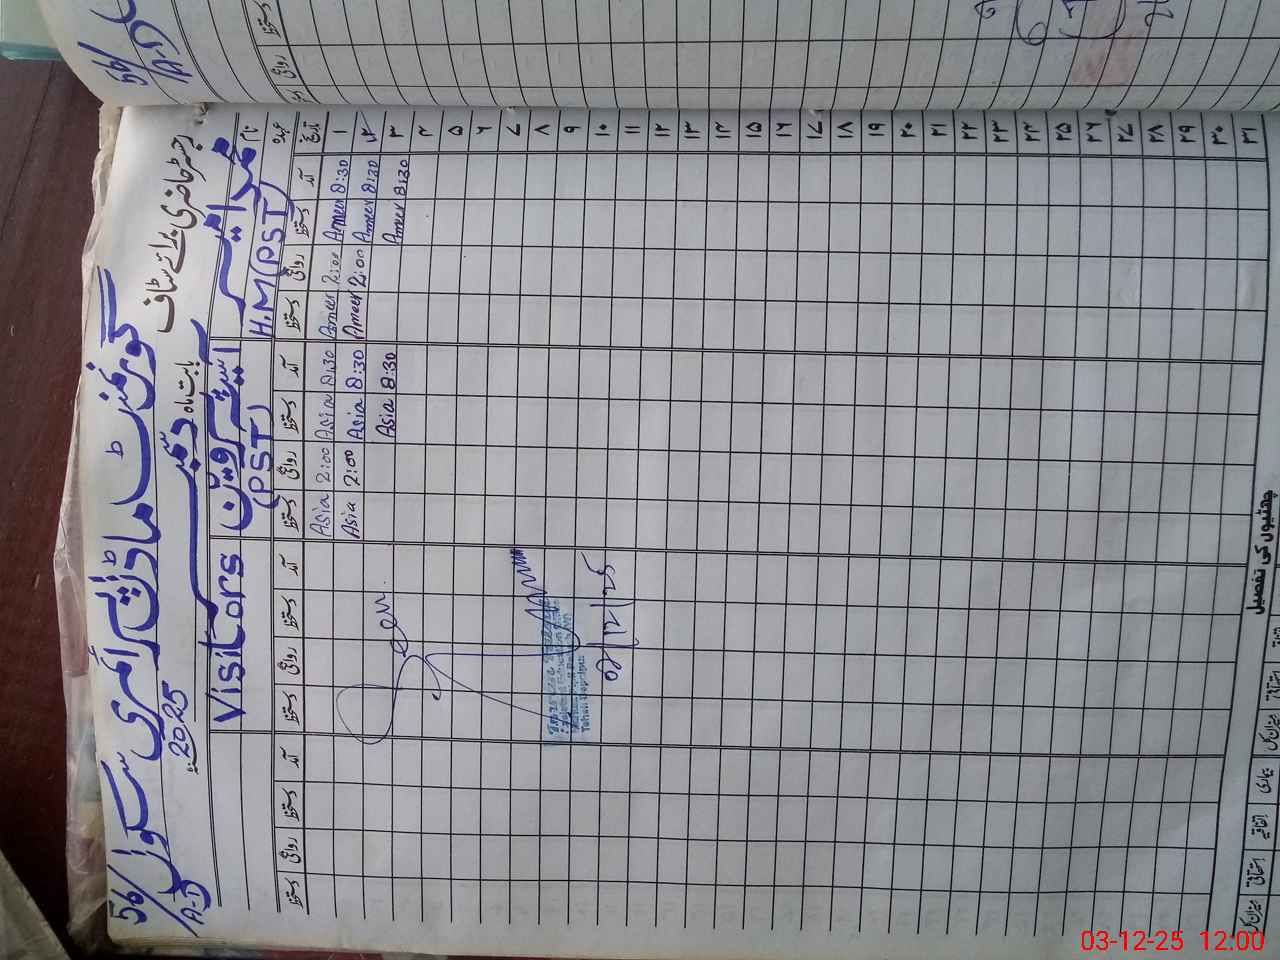 رجسٹر حاضری برائے سٹاف
گورنمنٹ ماڈل پرائمری سکول 56/A-D
بابت ماہ دسمبر 2025
نام محمد امیر Visitors
عہدہ H.M(PST) (PST)
تاریخ آمد دستخط روانگی دستخط آمد دستخط روانگی دستخط آمد دستخط روانگی دستخط آمد دستخط روانگی دستخط
۱ 8:30 Ameer 2:00 Ameer 8:30 Asia 2:00 Asia
۲ 8:30 Ameer 2:00 Ameer 8:30 Asia 2:00 Asia
۳ 8:30 Ameer 8:30 Asia
۴
۵
۶
۷
۸
۹
۱۰
02/12/25
۱۱
۱۲
۱۳
۱۴
۱۵
۱۶
۱۷
۱۸
۱۹
۲۰
۲۱
۲۲
۲۳
۲۴
۲۵
۲۶
۲۷
۲۸
۲۹
۳۰
۳۱
چھٹیوں کی تفصیل
استحقاقیہ میزان کل بیماری اتفاقیہ استحقاقیہ میزان کل
56/A-D
روانگی دستخط
03-12-25 12:00